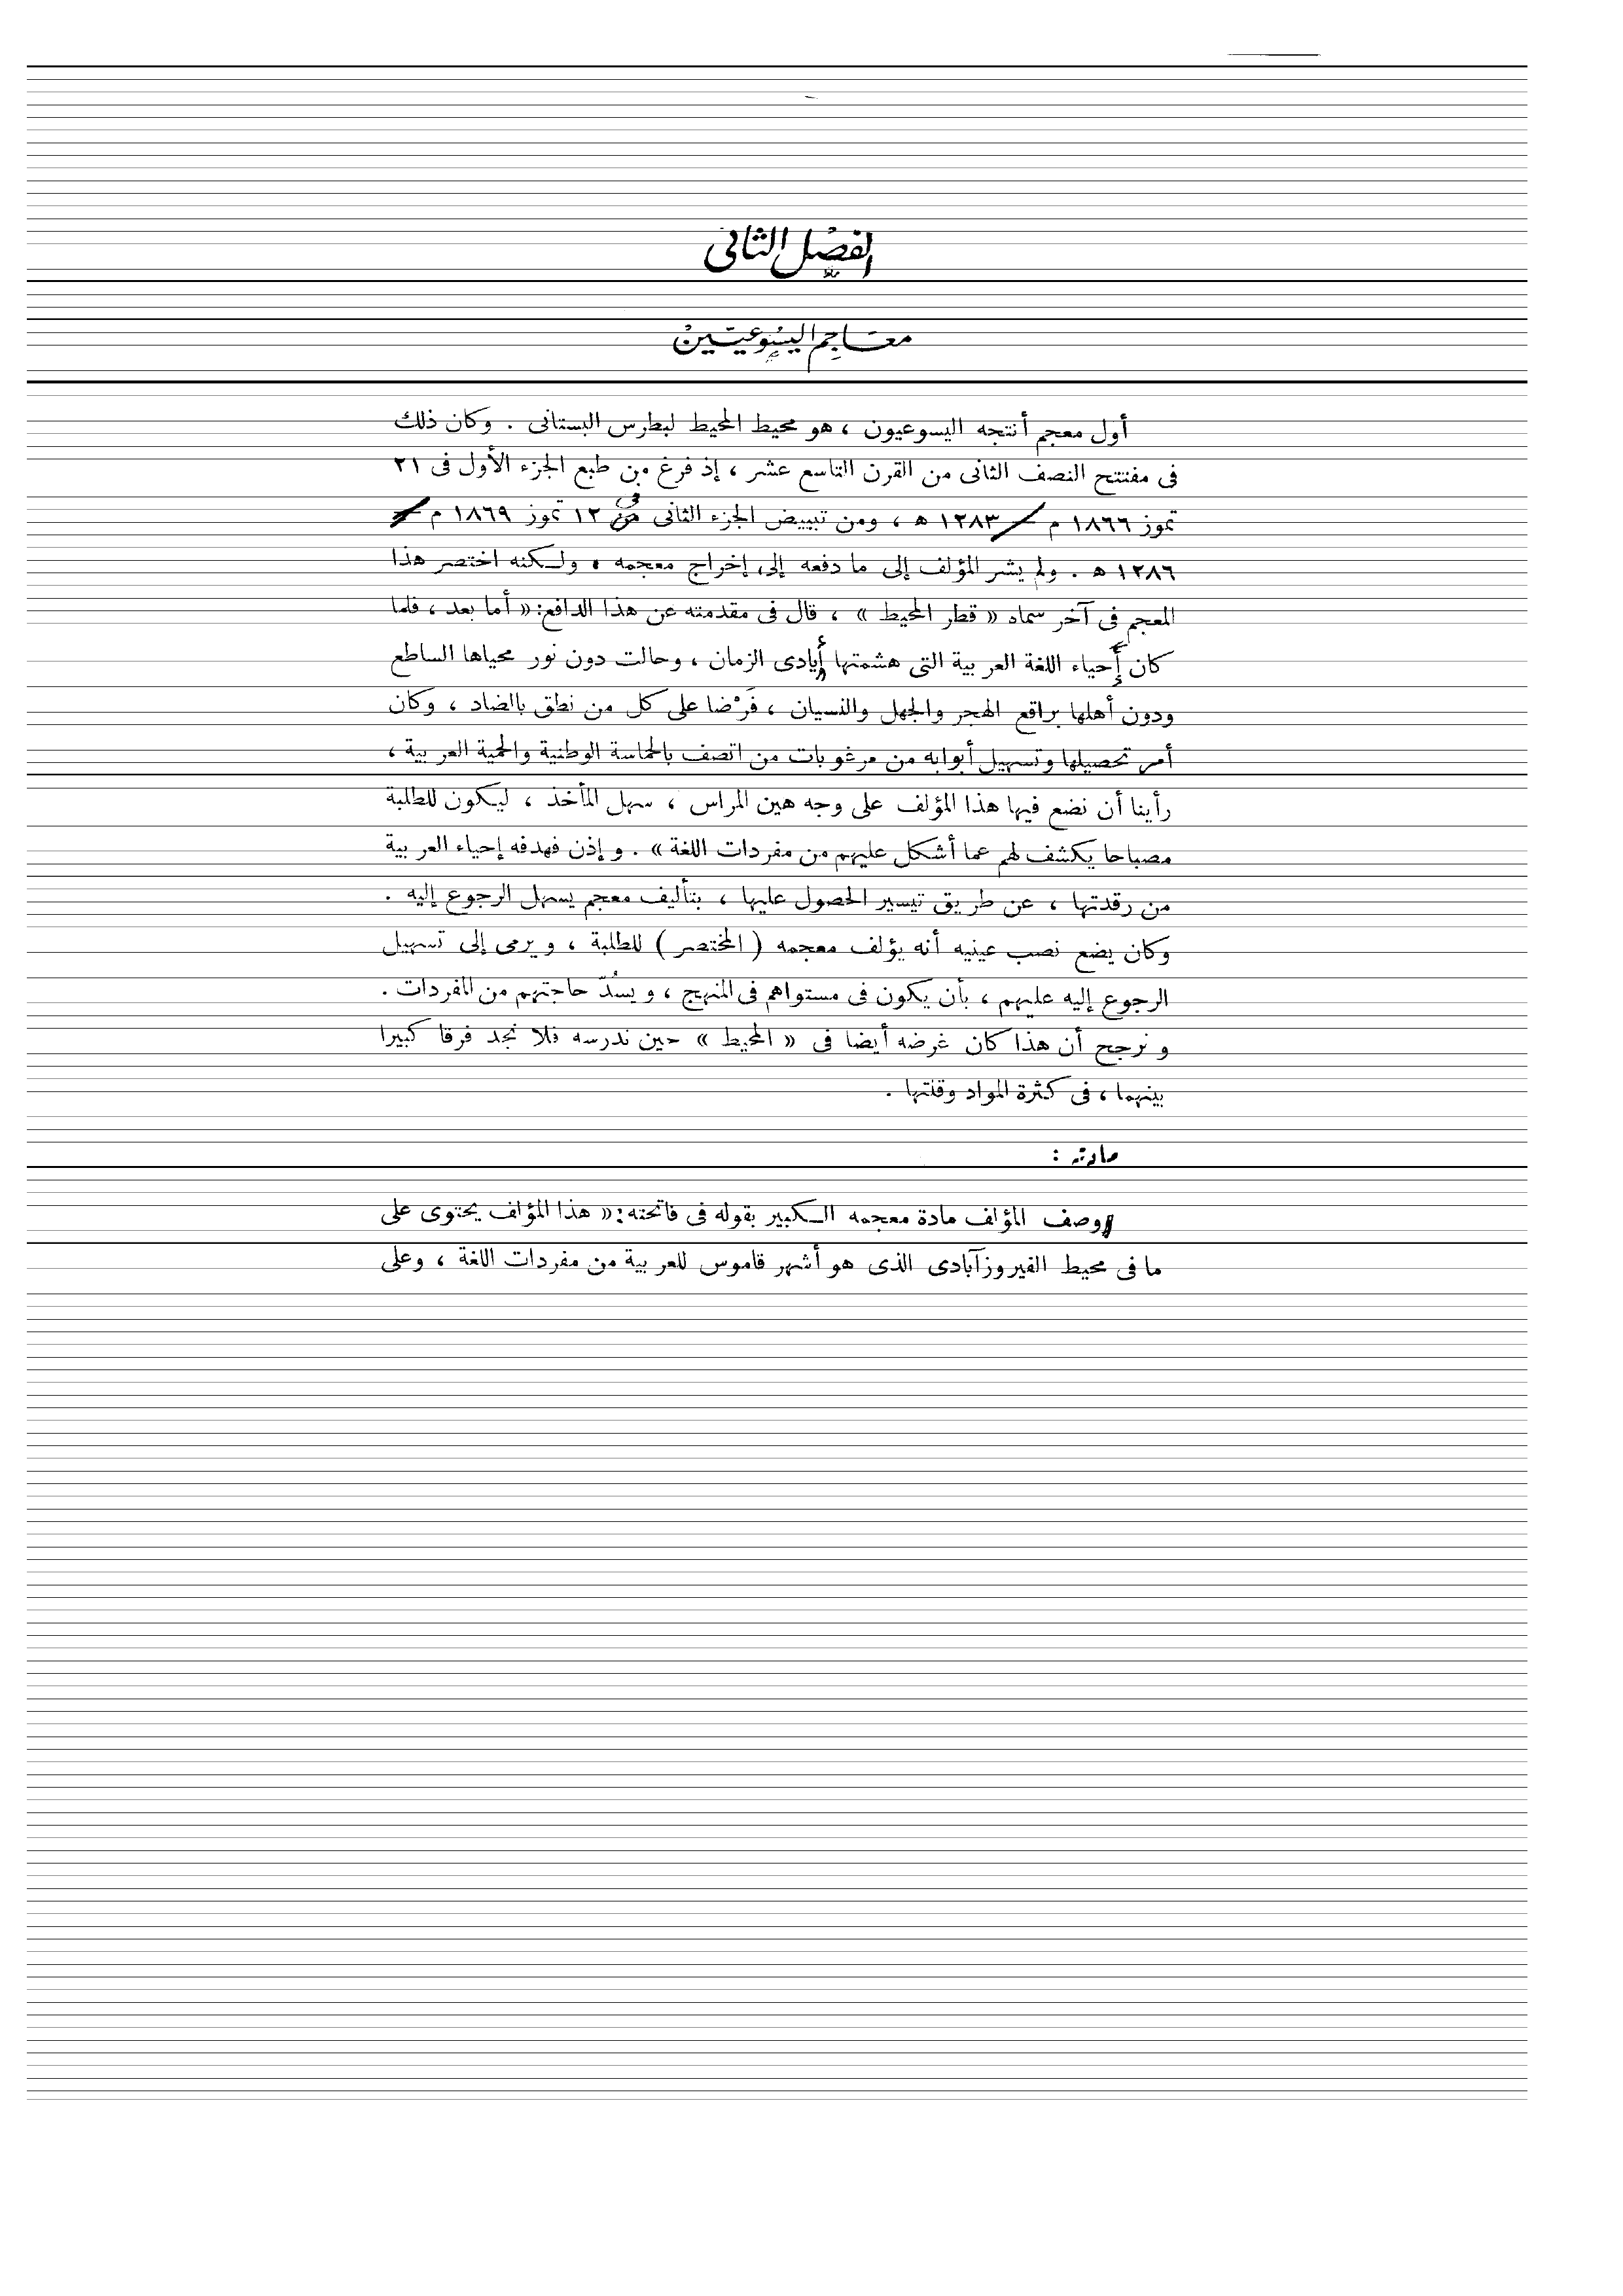 الفصل الثانى
معاجم اليسوعيين
أول معجم أنتجه اليسوعيون ، هو محيط المحيط لبطرس البستانى . وكان ذلك
فى مفتتح النصف الثانى من القرن التاسع عشر ، إذ فرغ من طبع الجزء الأول فى ٢١
تموز ١٨٦٦ م — ١٢٨٣ هـ ، ومن تبييض الجزء الثانى فى ١٢ تموز ١٨٦٩ م —
١٢٨٦ هـ . ولم يشر المؤلف إلى ما دفعه إلى إخراج معجمه ، ولكنه اختصر هذا
المعجم فى آخر سماه « قطر المحيط » ، قال فى مقدمته عن هذا الدافع: « أما بعد ، فلما
كان إحياء اللغة العربية التى هشمتها أيادى الزمان ، وحالت دون نور محياها الساطع
ودون أهلها براقع الهجر والجهل والنسيان ، فَرْضا على كل من نطق باالضاد ، وكان
أمر تحصيلها وتسهيل أبوابه من مرغوبات من اتصف بالحماسة الوطنية والحمية العربية ،
رأينا أن نضع فيها هذا المؤلف على وجه هين المراس ، سهل المأخذ ، ليكون للطلبة
مصباحا يكشف لهم عما أشكل عليهم من مفردات اللغة » . وإذن فهدفه إحياء العربية
من رقدتها ، عن طريق تيسير الحصول عليها ، بتأليف معجم يسهل الرجوع إليه .
وكان يضع نصب عينيه أنه يؤلف معجمه ( المختصر ) للطلبة ، ويرمى إلى تسهيل
الرجوع إليه عليهم ، بأن يكون فى مستواهم فى المنهج ، ويسُدّ حاجتهم من المفردات .
ونرجح أن هذا كان غرضه أيضا فى « المحيط » حين ندرسه فلا نجد فرقا كبيرا
بينهما ، فى كثرة المواد وقلتها .
مادته :
وصف المؤلف مادة معجمه الكبير بقوله فى فاتحته: « هذا المؤلف يحتوى على
ما فى محيط الفيروزآبادى الذى هو أشهر قاموس للعربية من مفردات اللغة ، وعلى